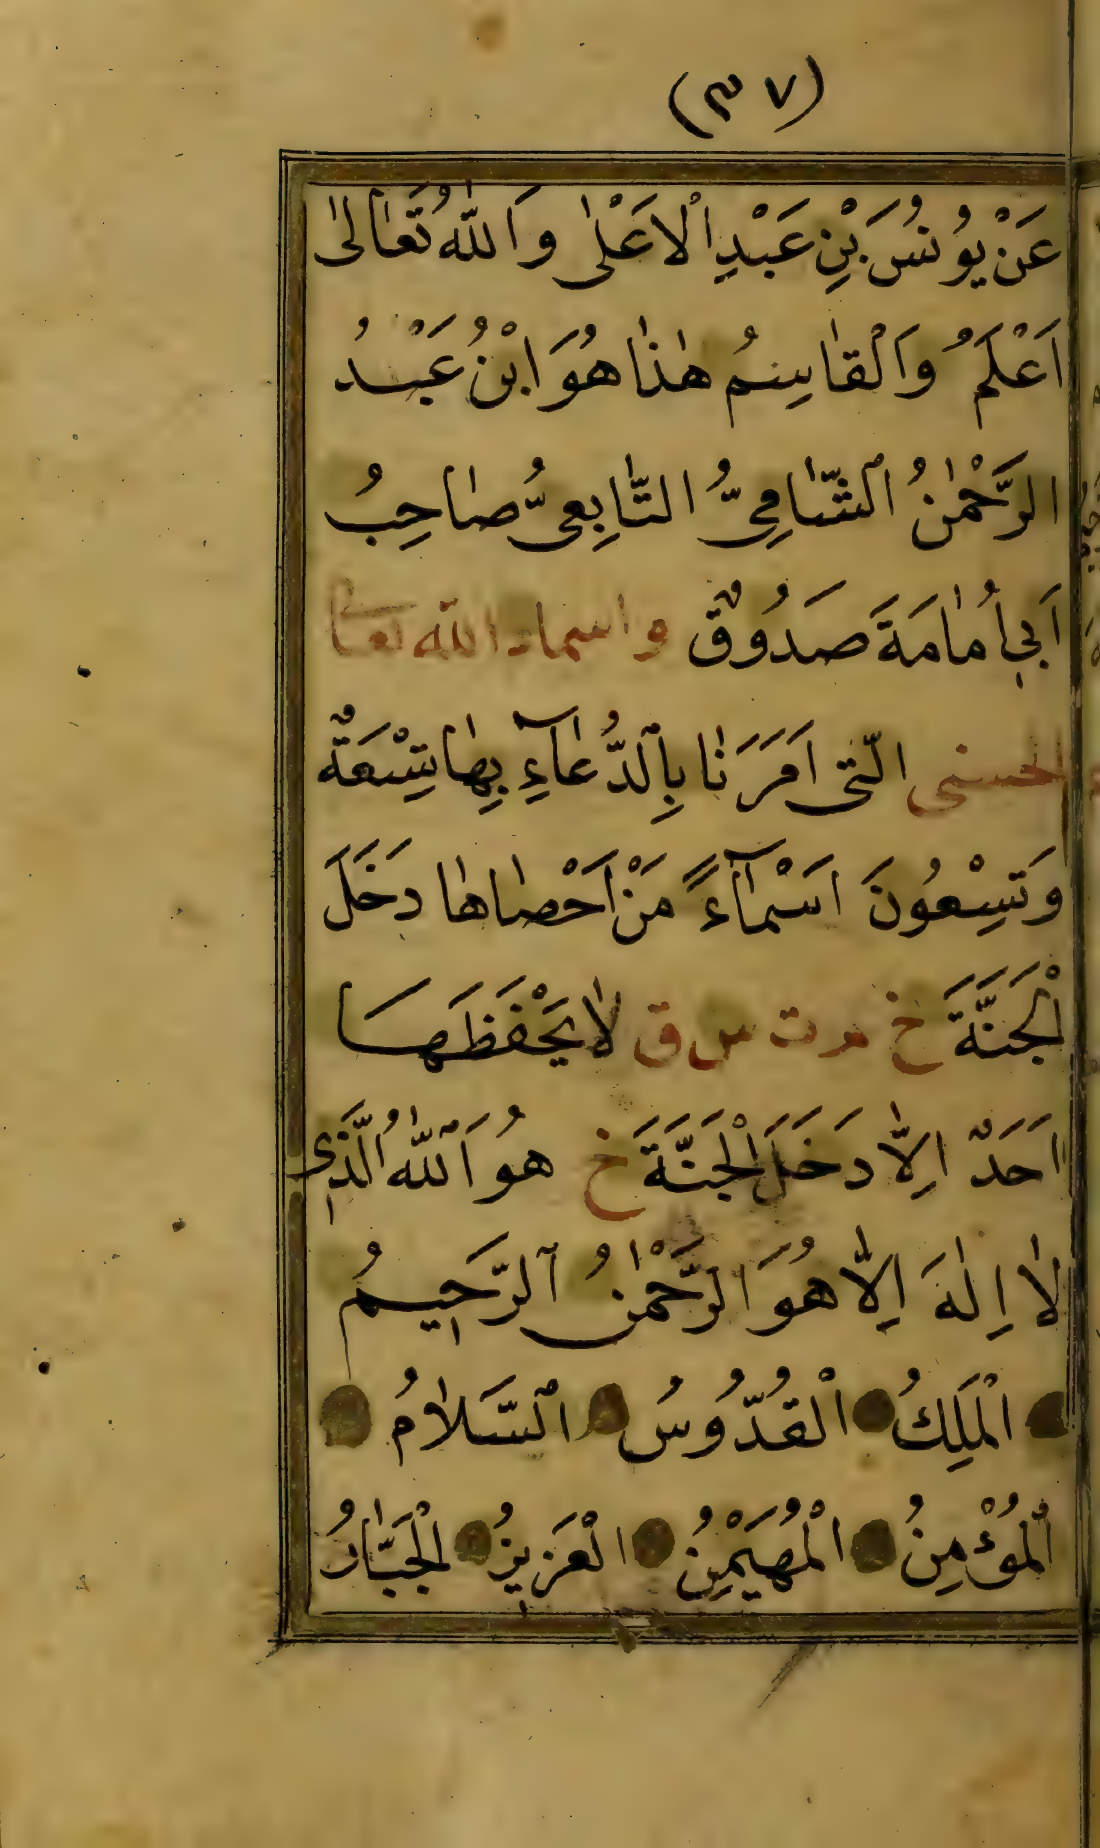 (٣٧)
عَنْ يُونُسَ بْنِ عَبْدِ الْاَعْلٰى وَاللّٰهُ تَعَالٰى
اَعْلَمُ وَالْقَاسِمُ هٰذَا هُوَ ابْنُ عَبْدُ
الرَّحْمٰنُ الشَّامِىُّ التَّابِعِىُّ صَاحِبُ
اَبِى اُمَامَةَ صَدُوقٌ واسماء الله تعا
الحسنى الَّتِى اَمَرَنَا بِالدُّعَآءِ بِهَا تِسْعَةٌ
وَتِسْعُونَ اَسْمَآءً مَنْ اَحْصَاهَا دَخَلَ
الْجَنَّةَ خ م ت س ق لَا يَحْفَظَهَا
اَحَدٌ اِلَّا دَخَلَ الْجَنَّةَ خ هُوَ اللّٰهُ الَّذِى
لَا اِلٰهَ اِلَّا هُوَ الرَّحْمٰنُ الرَّحِيمُ
الْمَلِكُ الْقُدُّوسُ السَّلَامُ
الْمُؤْمِنُ الْمُهَيْمِنُ الْعَزِيزُ الْجَبَّارُ